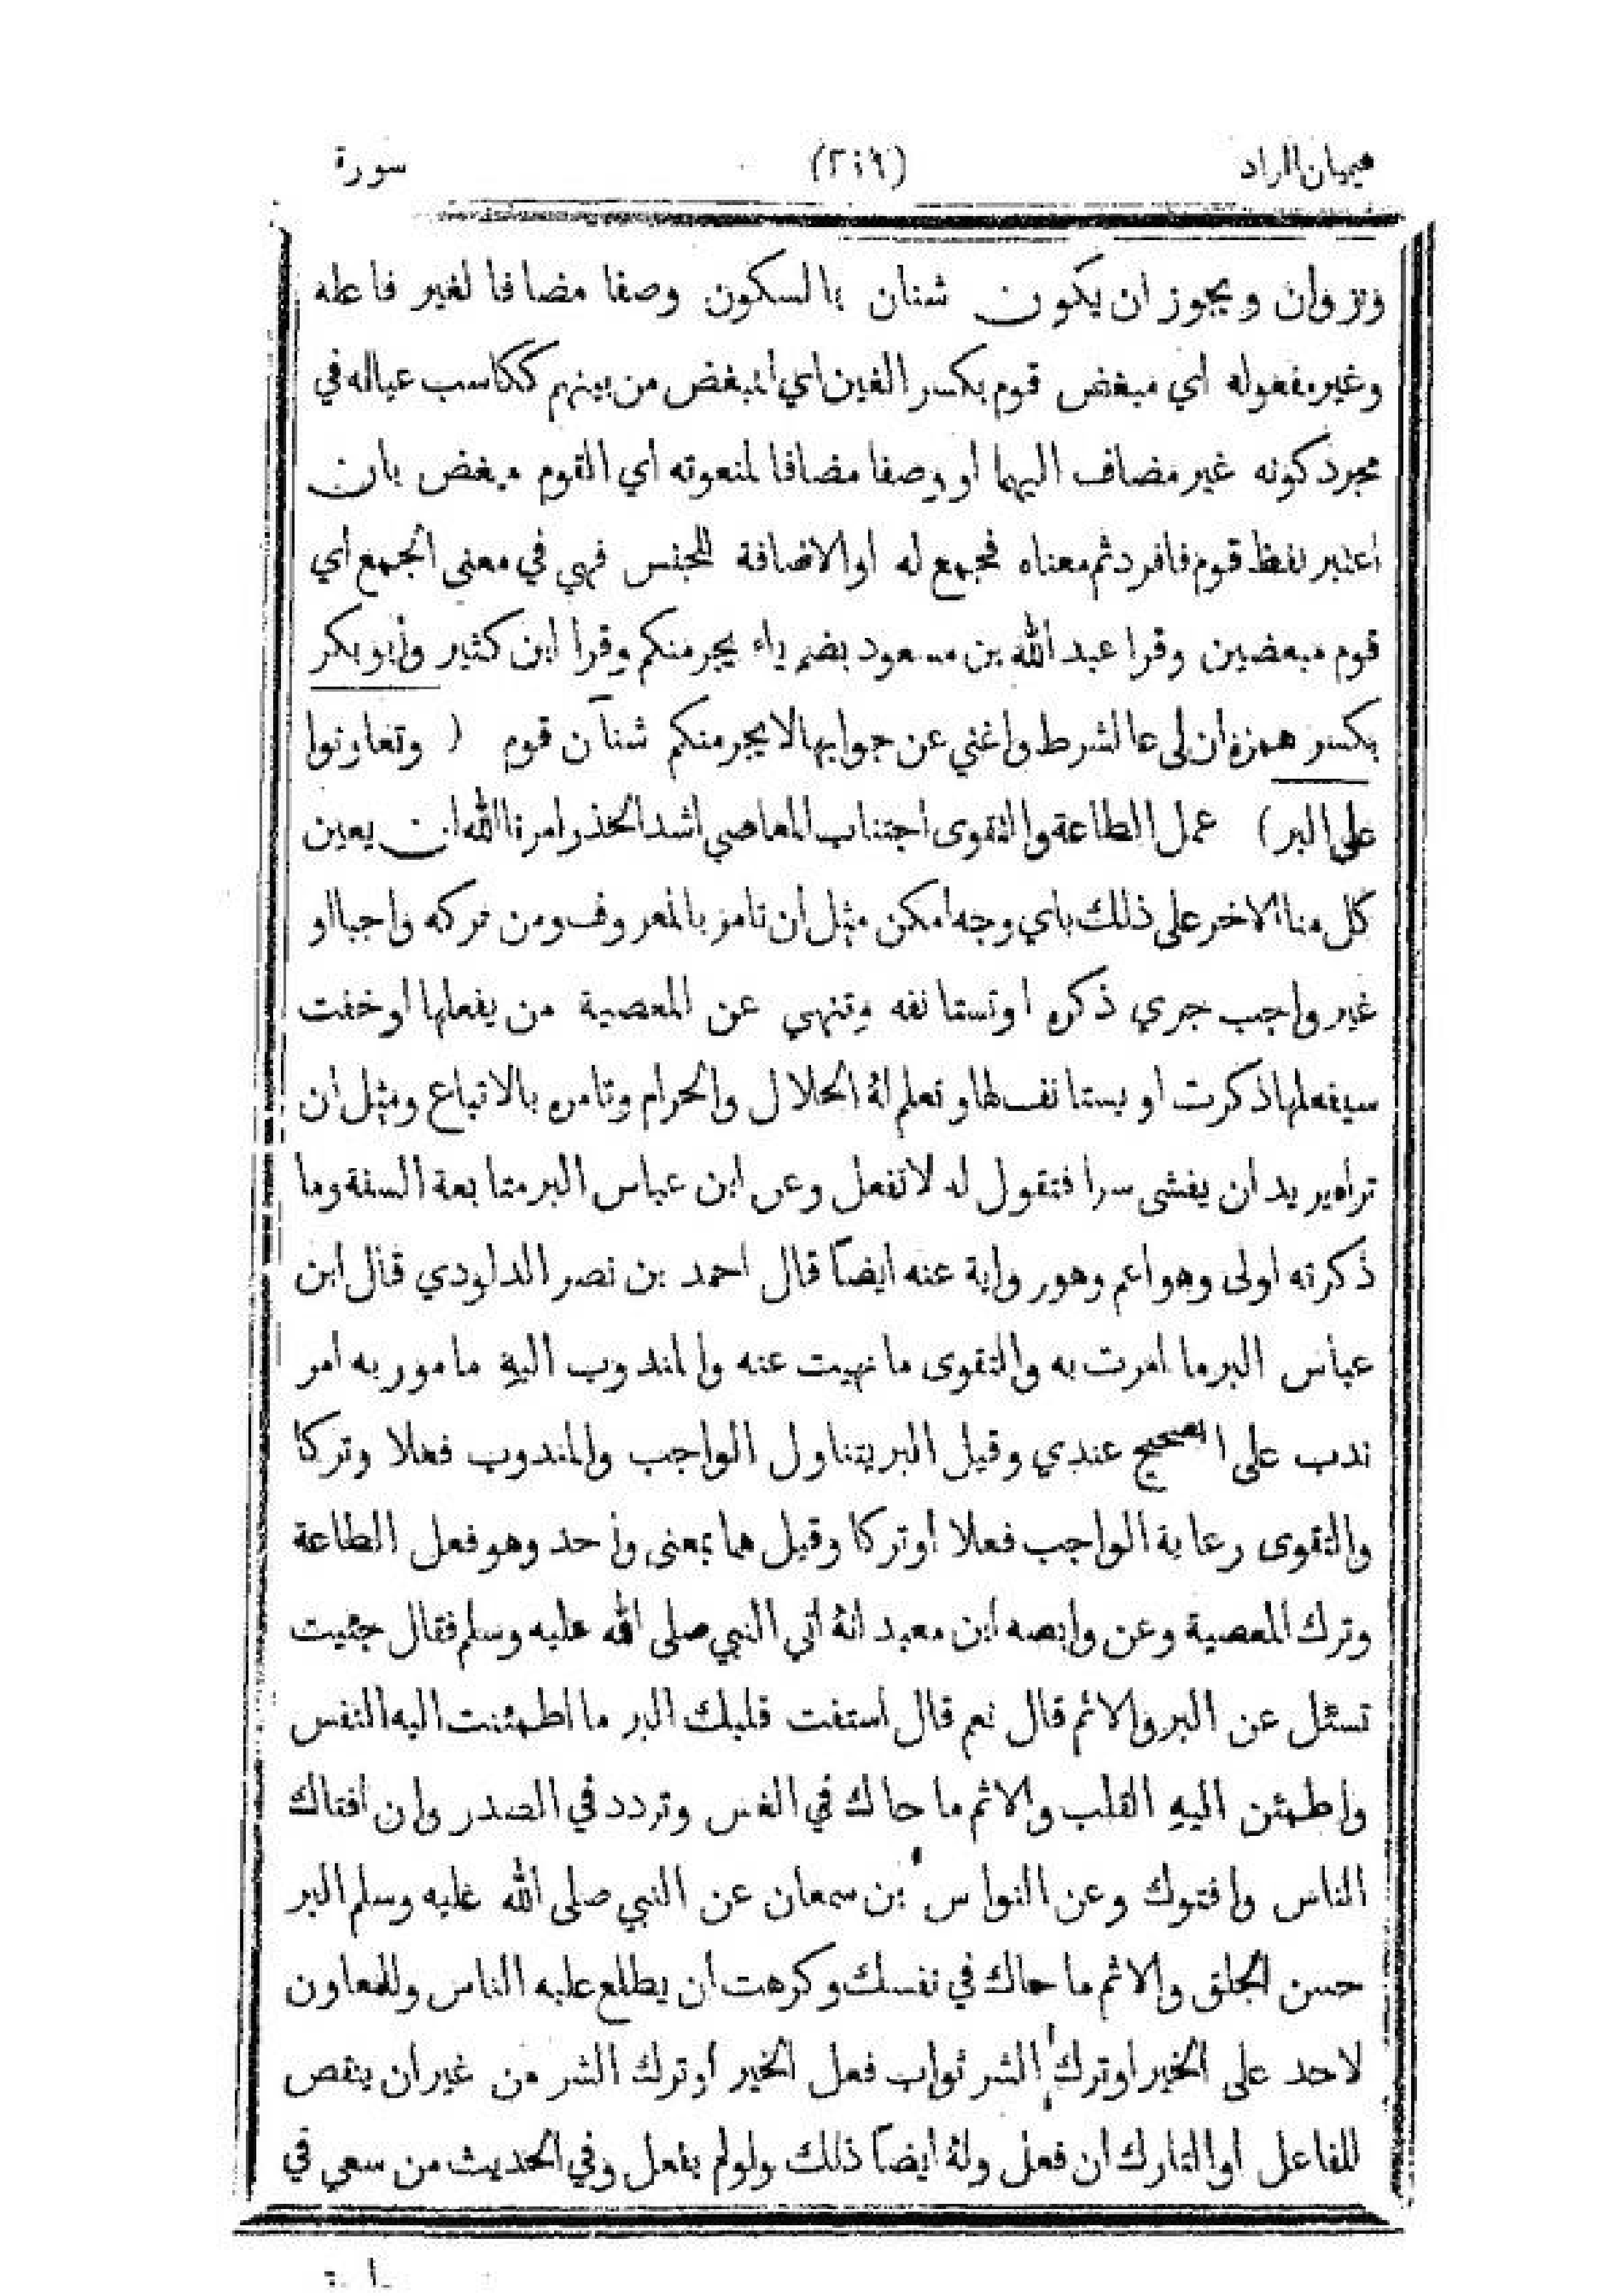 هيميان الزاد (٢٤٩) سورة
ونزوان ويجوز ان يكون شنان بالسكون وصفا مضافا لغير فاعله
وغير مفعوله اي مبغض قوم بكسر الغين اي المبغض من بينهم ككاسب عياله في
مجرد كونه غير مضاف اليهما او وصفا مضافا لمنعوته اي القوم مبغض بان
اعتبر لفظ قوم فافرد ثم معناه فجمع له او الاضافة للجنس فهي في معنى الجمع اي
قوم مبغضين وقرا عبد الله بن مسعود بضم ياء يجرمنكم وقرا ابن كثير وأبو بكر
بكسر همزة ان لى عا لشرط واغني عن جوابها لا يجرمنكم شنآن قوم ( وتعاونوا
على البر) عمل الطاعة والتقوى اجتناب المعاصي اشد الحذر امرنا الله ان يعين
كل منا الاخر على ذلك باي وجه امكن مثل ان تامر بالمعروف ومن تركه واجبا او
غير واجب جري ذكره او تستانفه وتنهي عن المعصية من يفعلها او خفت
سيفعلها ذكرت او يستانف لها وتعلم لهُ الحلال والحرام وتامره بالاتباع ومثل ان
تراه يريد ان يفشى سرا فتقول له لا تفعل وعن ابن عباس البر متابعة السنة وما
ذكرته اولى وهو اعم وهو رواية عنه ايضاً قال احمد بن نصر الداودي قال ابن
عباس البر ما امرت به والتقوى ما نهيت عنه والمندوب اليهِ مامور به امر
ندب على الصحيح عندي وقيل البر يتناول الواجب والمندوب فعلا وتركا
والتقوى رعاية الواجب فعلا أو تركا وقيل هما بمعنى واحد وهو فعل الطاعة
وترك المعصية وعن وابصه ابن معبد انهُ اتي النبي صلى الله عليه وسلم فقال جئيت
تسئل عن البر والاثم قال نعم قال استفت قلبك البر ما اطمئنت اليه النفس
واطمئن اليهِ القلب والاثم ما حاك في النفس وتردد في الصدر وان افتاك
الناس وافتوك وعن النواس بن سمعان عن النبي صلى الله عليه وسلم البر
حسن الخلق والاثم ما حاك في نفسك وكرهت ان يطلع عليه الناس وللمعاون
لاحد على الخير او ترك الشر ثواب فعل الخير او ترك الشر من غير ان ينقص
للفاعل او التارك ان فعل ولهُ ايضاً ذلك ولو لم يفعل وفي الحديث من سعي في